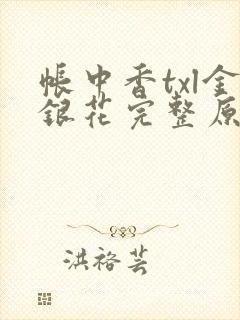 帐中香txl金
银花完整原
洪裕芸